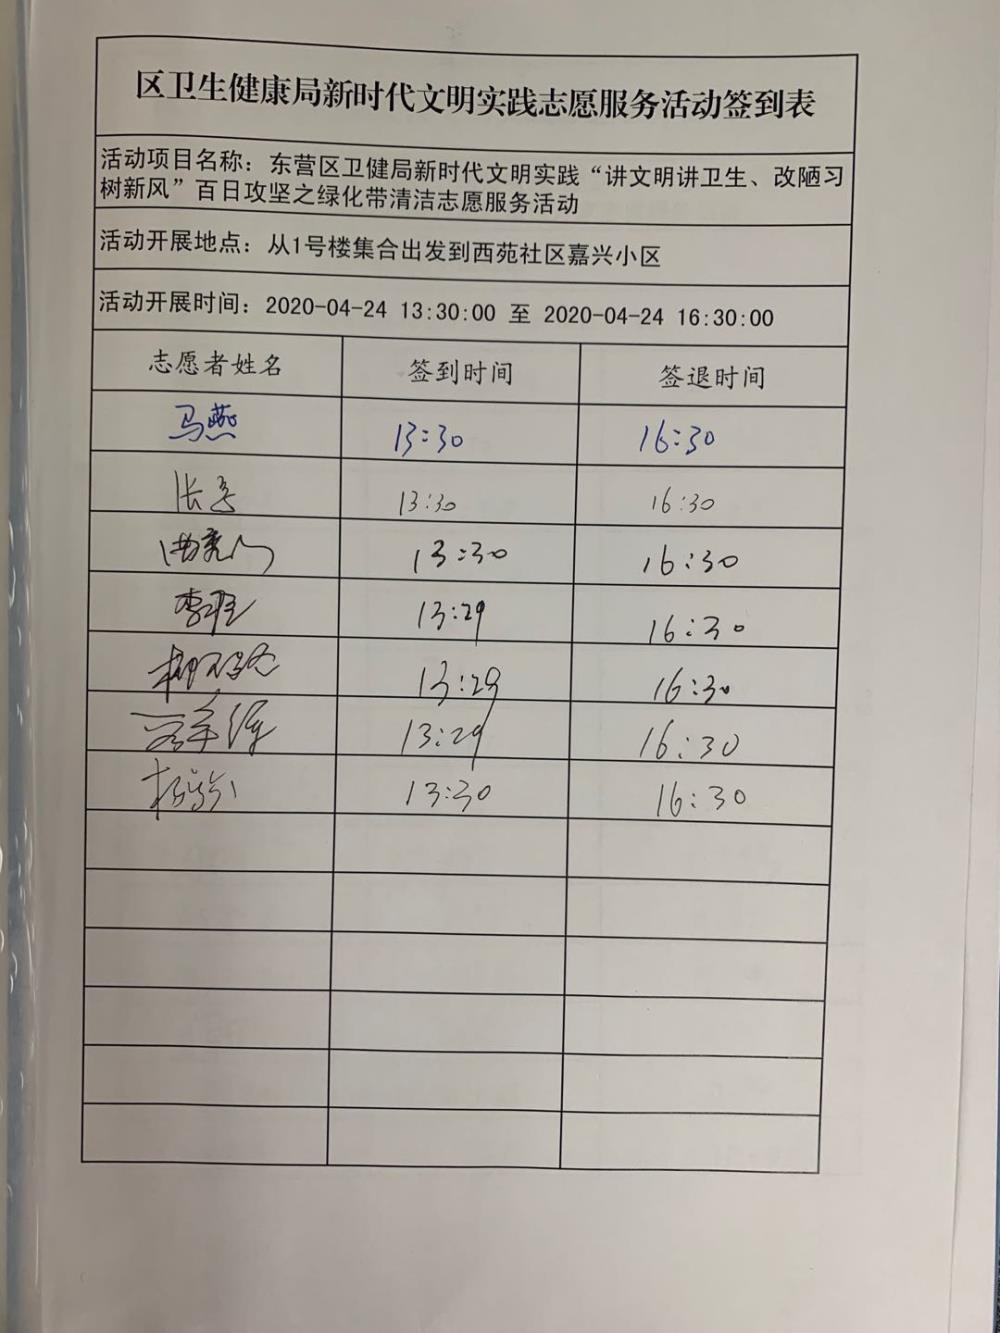 区卫生健康局新时代文明实践志愿服务活动签到表
活动项目名称：东营区卫健局新时代文明实践“讲文明讲卫生、改陋习
树新风”百日攻坚之绿化带清洁志愿服务活动
活动开展地点：从1号楼集合出发到西苑社区嘉兴小区
活动开展时间：2020-04-24 13:30:00 至 2020-04-24 16:30:00
志愿者姓名 签到时间 签退时间
马燕 13:30 16:30
张 13:30 16:30
13:30 16:30
李 13:29 16:30
柳 13:29 16:30
13:29 16:30
杨 13:30 16:30